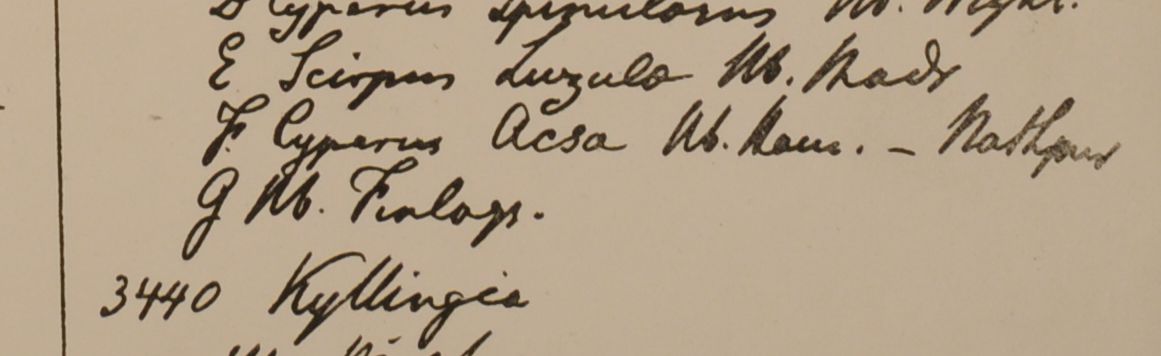 D Cyperus spinulosus Hb. Wight.
E Scirpus Luzula Hb. Madr
F. Cyperus Acsa Hb. Ham. – Nathpur
G Hb. Finlays.
3440 Kyllingia